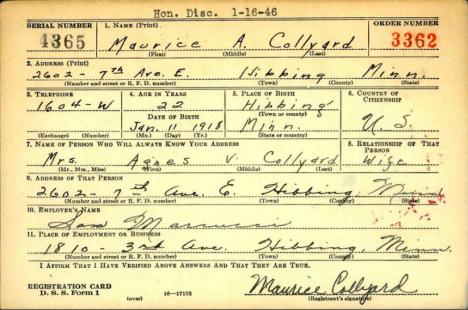 Hon. Disc. 1-16-46
SERIAL NUMBER 1. NAME (Print) ORDER NUMBER
4365 Maurice A. Collyard 3362
(First) (Middle) (Last)
2. ADDRESS (Print)
2602 - 7th Ave. E. Hibbing Minn.
(Number and street or R. F. D. number) (Town) (County) (State)
3. TELEPHONE 4. AGE IN YEARS 5. PLACE OF BIRTH 6. COUNTRY OF CITIZENSHIP
1604-W 22 Hibbing
(Town or county)
DATE OF BIRTH
Jan. 11 1918 Minn. U. S.
(Exchange) (Number) (Mo.) (Day) (Yr.) (State or country)
7. NAME OF PERSON WHO WILL ALWAYS KNOW YOUR ADDRESS 8. RELATIONSHIP OF THAT PERSON
Mrs. Agnes V. Collyard Wife
(Mr., Mrs., Miss) (First) (Middle) (Last)
9. ADDRESS OF THAT PERSON
2602 - 7th Ave. E. Hibbing, Minn.
(Number and street or R. F. D. number) (Town) (County) (State)
10. EMPLOYER'S NAME
Sam
11. PLACE OF EMPLOYMENT OR BUSINESS
1810 - 3rd Ave. Hibbing, Minn.
(Number and street or R. F. D. number) (Town) (County) (State)
I AFFIRM THAT I HAVE VERIFIED ABOVE ANSWERS AND THAT THEY ARE TRUE.
REGISTRATION CARD
D. S. S. Form 1 (over) 16-17105 Maurice Collyard
(Registrant's signature)